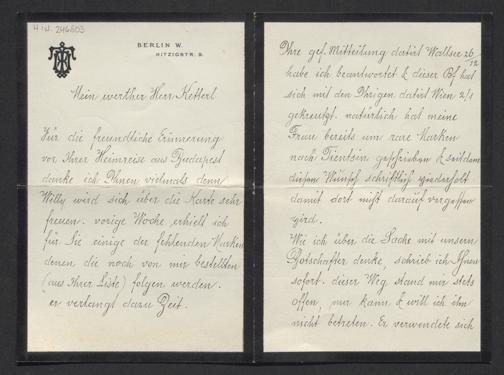 H.I.N. 246603
BERLIN W.
HITZIGSTR. 9.
Mein werther Herr Ketterl
Für die freundliche Erinnerung
vor Ihrer Heimreise aus Budapest
danke ich Ihnen vielmals denn
Willy wird sich über die Karte sehr
freuen. vorige Woche erhielt ich
für Sie einige der fehlenden Marken
denen die noch von mir bestellten
(aus Ihrer Liste) folgen werden.
er verlangt dazu Zeit.
Ihre gef. Mitteilung datirt Wallsee 26/12
habe ich beantwortet & dieser Bf hat
sich mit den Ihrigen datirt Wien 2/1
gekreuzt. natürlich hat meine
Frau bereits um rare Marken
nach Tientsin geschrieben & seitdem
diesen Wunsch schriftlich wiederholt
damit dort nicht darauf vergessen
wird.
Wie ich über die Sache mit unserm
Botschafter denke, schrieb ich Ihnen
sofort. dieser Weg stand mir stets
offen, nur kann & will ich ihn
nicht betreten. Er verwendete sich